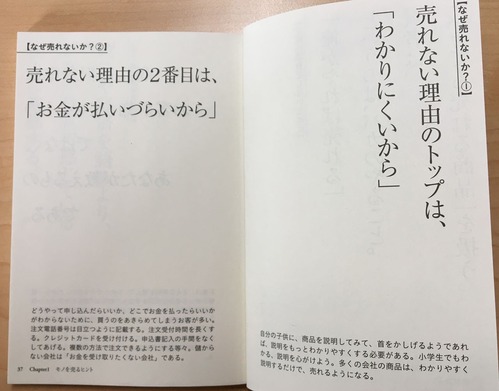 【なぜ売れないか？①】
売れない理由のトップは、
「わかりにくいから」
自分の子供に、商品を説明してみて、首をかしげるようであれ
ば、説明をもっとわかりやすくする必要がある。小学生でもわ
かる、説明を心がけよう。多くの会社の商品は、わかりやすく
説明するだけで、売れるようになる。
【なぜ売れないか？②】
売れない理由の2番目は、
「お金が払いづらいから」
どうやって申し込んだらいいか、どこでお金を払ったらいいか
がわからないために、買うのをあきらめてしまうお客が多い。
注文電話番号は目立つように記載する。注文受付時間を長くす
る。クレジットカードを受け付ける。申込書記入の手間をなく
してあげる。複数の方法で注文できるようにする等々。儲から
ない会社は「お金を受け取りたくない会社」である。
37 Chapter1 モノを売るヒント